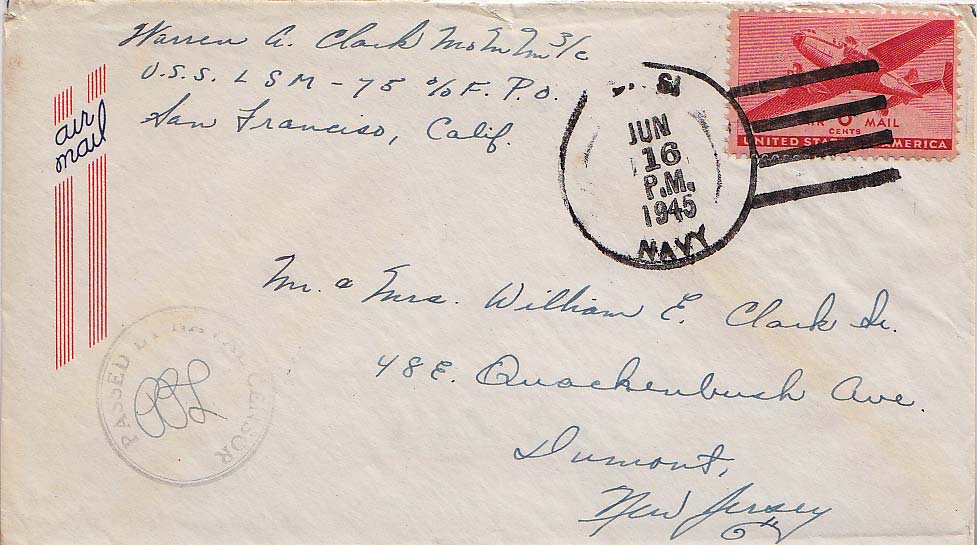 Warren A. Clark MoMM 3/c
U.S.S. LSM-75 c/o F. P. O.
San Franciso, Calif.
air
mail
U. S.
JUN
16
P.M.
1945
NAVY
AIR 6 MAIL
CENTS
UNITED STATES OF AMERICA
Mr. & Mrs. William E. Clark Sr.
48 E. Quackenbush Ave.
Dumont,
New Jersey
PASSED BY NAVAL CENSOR